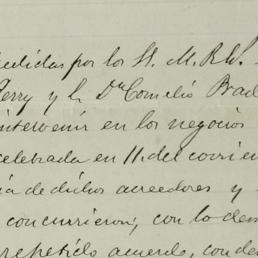 edidas por los St. M. R. W.
erry y L. Dn Cornelio Brad
intervenir en los negocios
celebrada en 11. del corrien
ia de dichos acreedores y
concurrieron, con lo dem
repetido acuerdo, con de